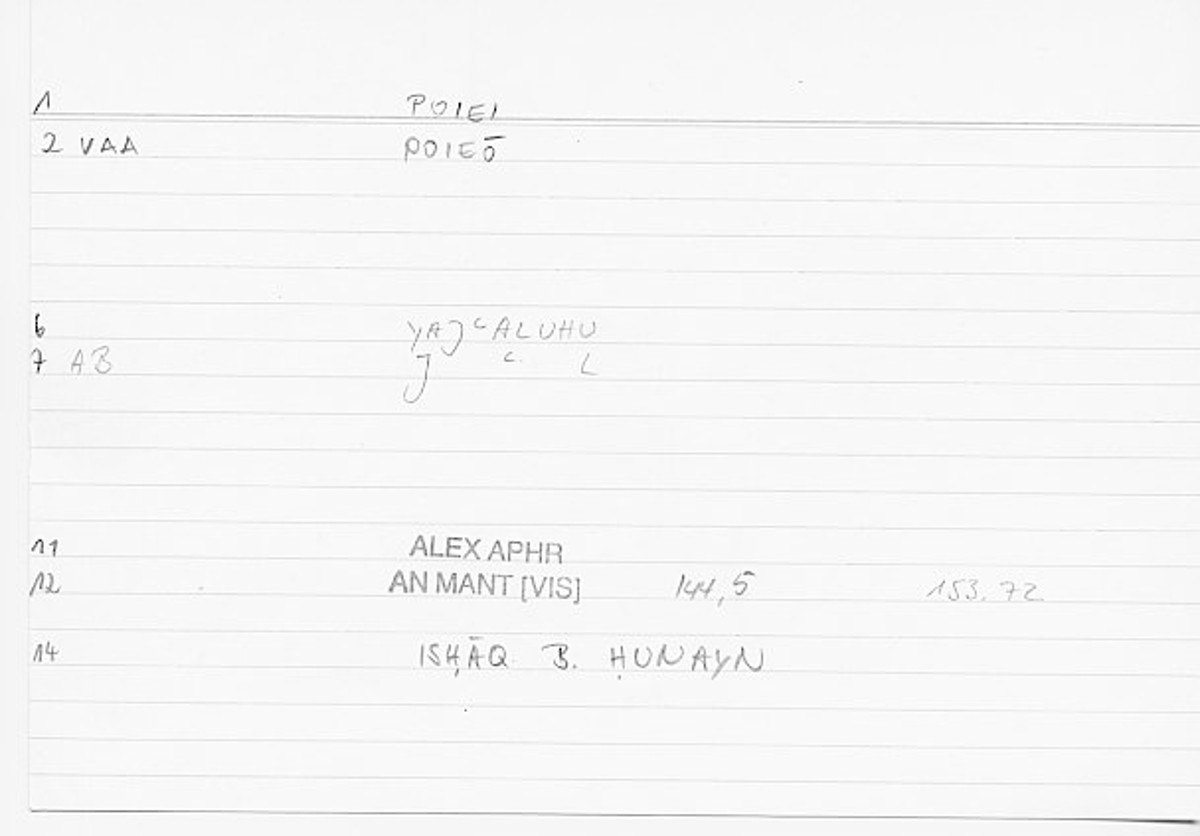 1 POIEI
2 VAA POIEŌ
6 YAJʿALUHU
7 AB J ʿ L
11 ALEX APHR
12 AN MANT [VIS] 144,5 153.72
14 ISḤĀQ B. ḤUNAYN